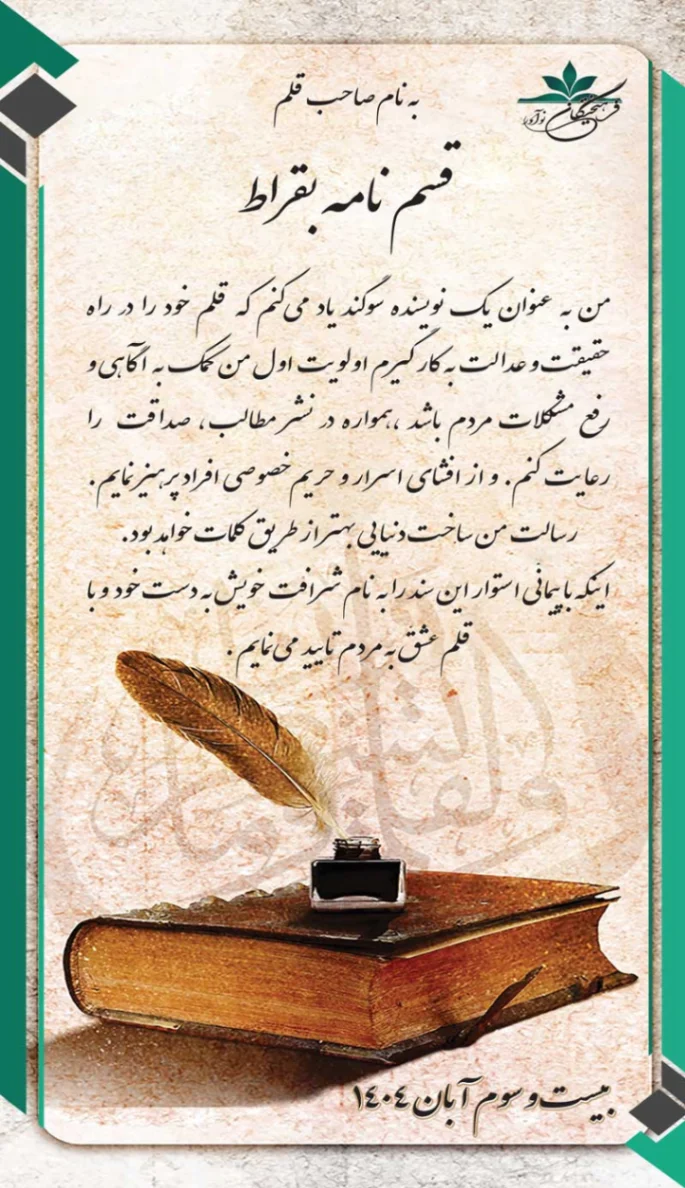 به نام صاحب قلم
فرهیختگان
نوآور
قسم نامه بقراط
من به عنوان یک نویسنده سوگند یاد می‌کنم که قلم خود را در راه
حقیقت و عدالت به کار گیرم اولویت اول من کمک به آگاهی و
رفع مشکلات مردم باشد ،همواره در نشر مطالب، صداقت را
رعایت کنم. و از افشای اسرار و حریم خصوصی افراد پرهیز نمایم.
رسالت من ساخت دنیایی بهتر از طریق کلمات خواهد بود.
اینکه با پیمانی استوار این سند را به نام شرافت خویش به دست خود و با
قلم عشق به مردم تایید می‌نمایم.
بیست و سوم آبان ۱۴۰۴